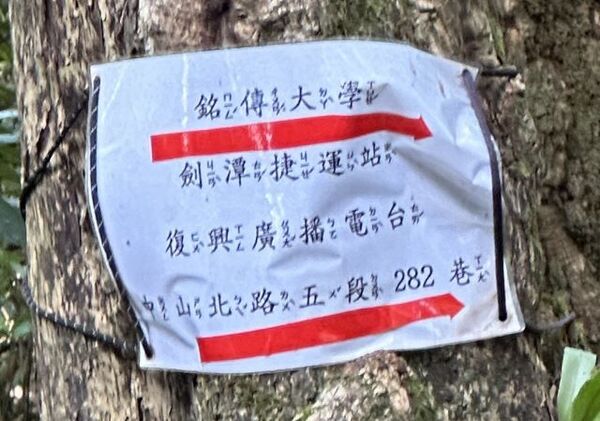 銘傳大學
劍潭捷運站
復興廣播電台
中山北路五段282巷